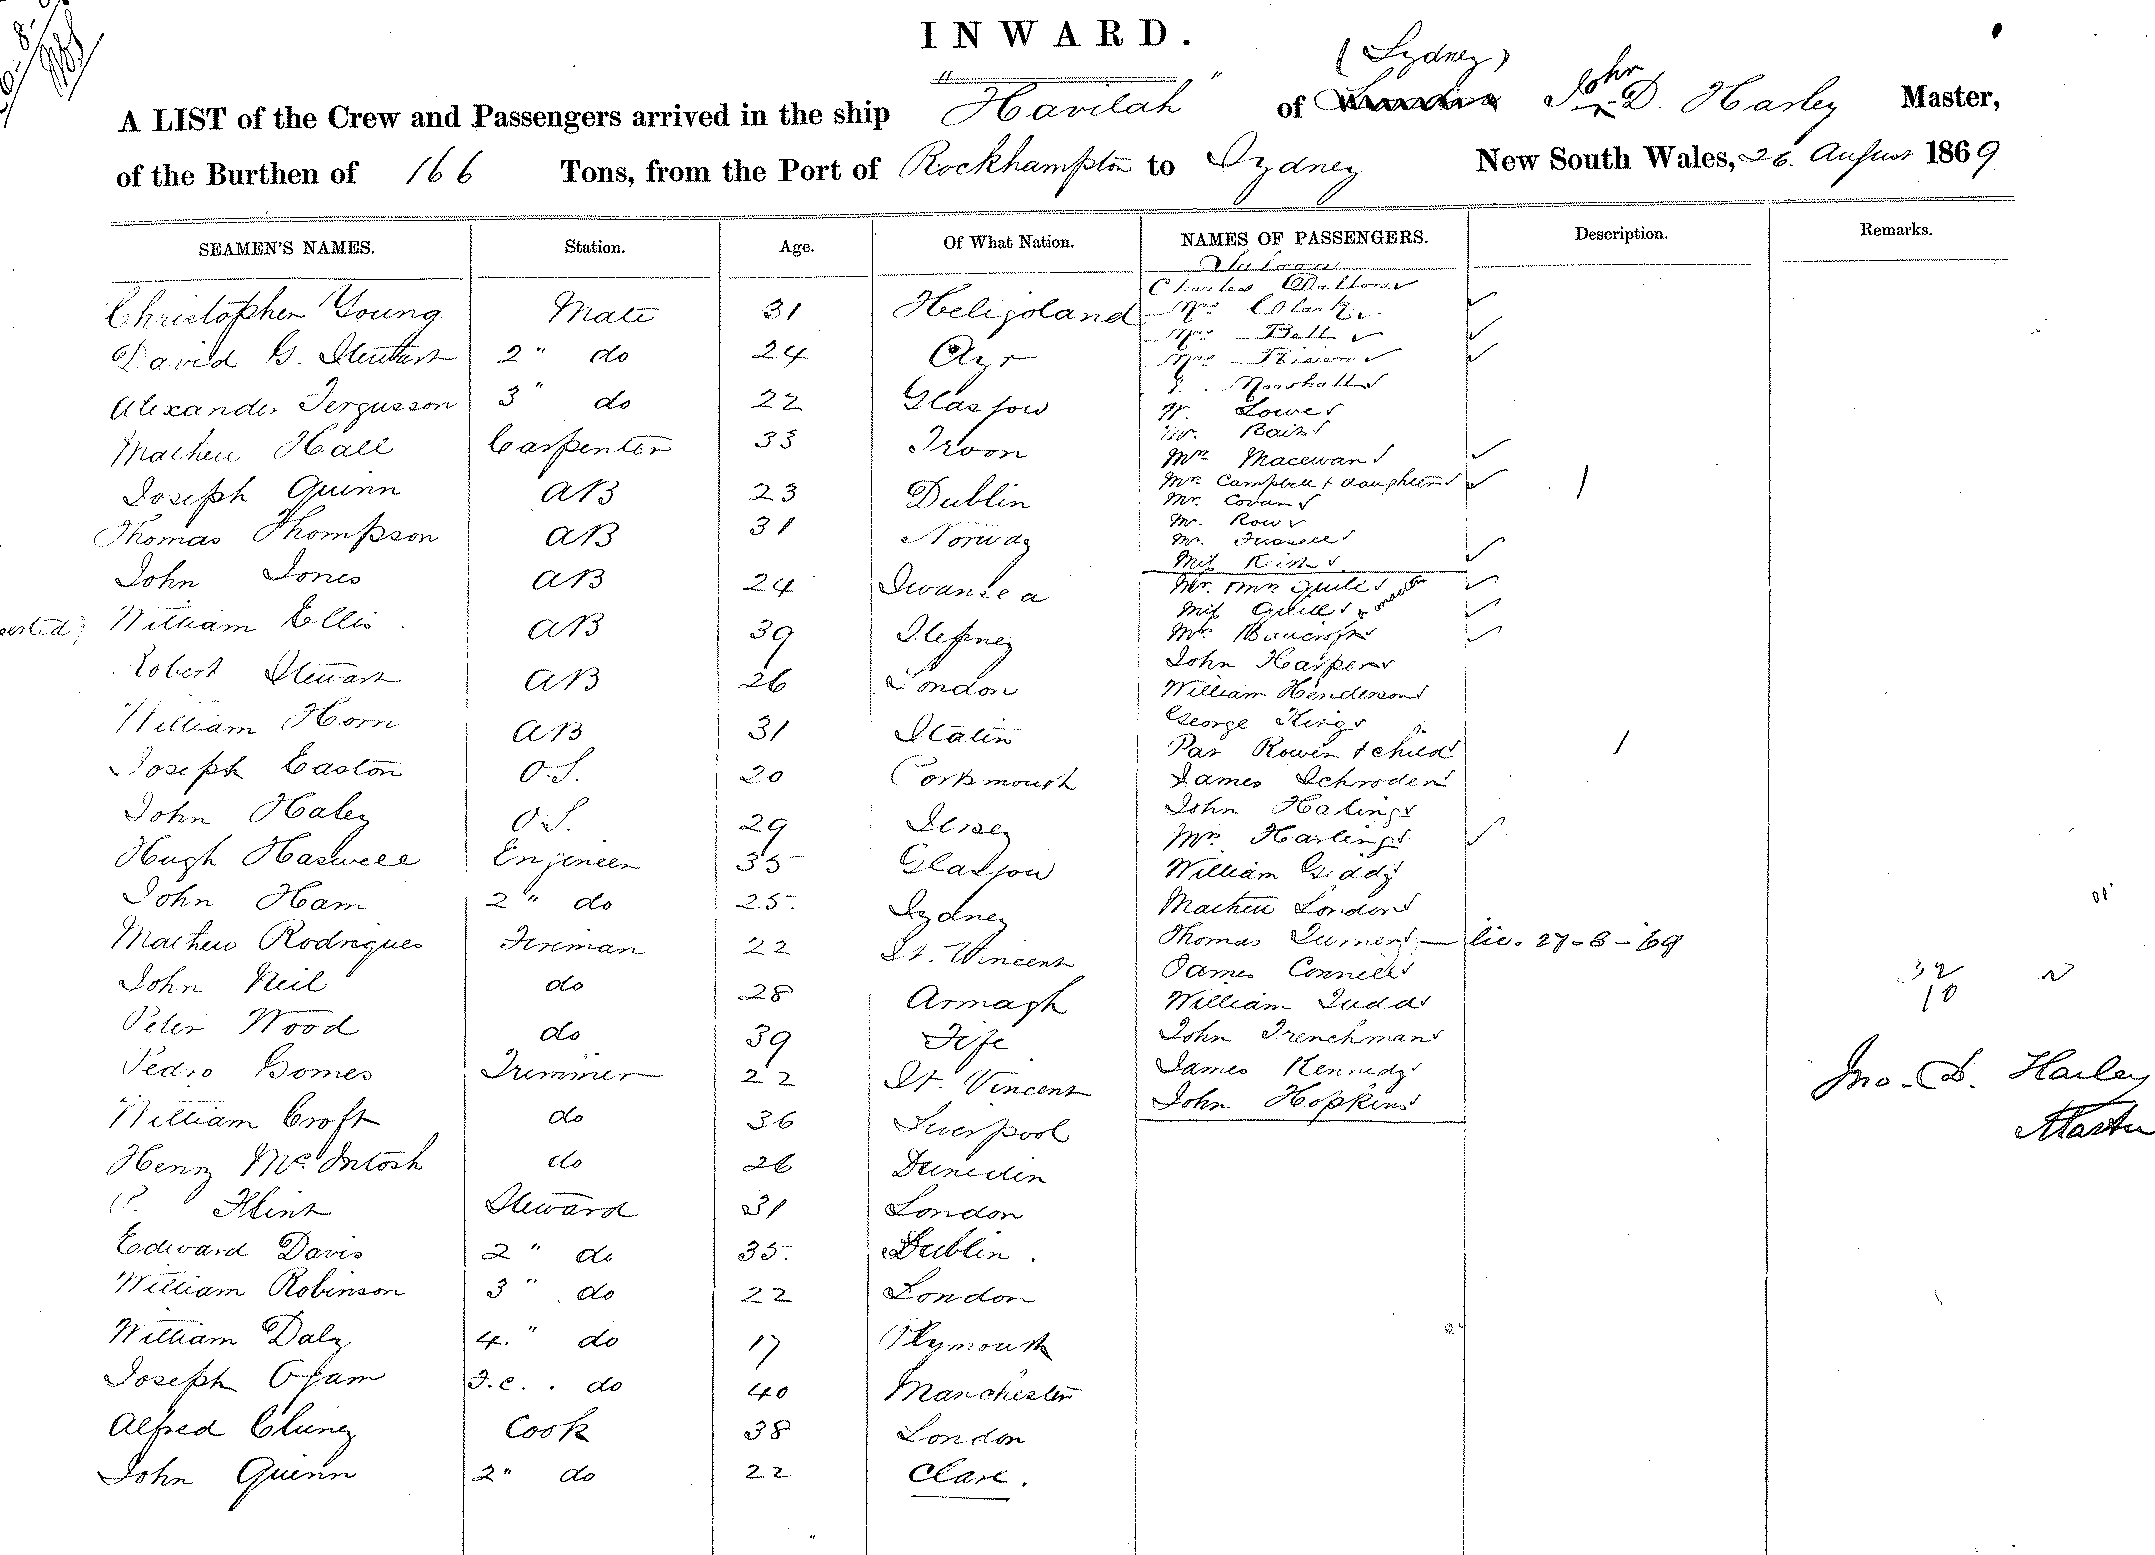 INWARD.
(Sydney)
A LIST of the Crew and Passengers arrived in the ship "Havilah" of John D. Harley Master,
of the Burthen of 166 Tons, from the Port of Rockhampton to Sydney New South Wales, 26. August 1869
SEAMEN'S NAMES. Station. Age. Of What Nation. NAMES OF PASSENGERS. Description. Remarks.
Saloon
Charles Dalton
Christopher Young Mate 31 Heligoland Mrs Clark
Mrs Bell
David G. Stewart 2" do 24 Ayr Mrs
Marshall
Alexander Fergusson 3" do 22 Glasgow W. Lowe
Mr. Bain
Mathew Hall Carpenter 33 Troon Mrs Macewan
Mrs Campbell + daughter
Joseph Quinn AB 23 Dublin Mr. Cowan
Mr. Row
Thomas Thompson AB 31 Norway Mr.
Miss King
John Jones AB 24 Swansea Mr. Mrs
Miss
William Ellis AB 39 Stepney Mr. Bancroft
John Harper
Robert Stewart AB 26 London William Henderson
George King
William Horn AB 31 Statin Pat Rowen + child
Joseph Easton O.S. 20 Portsmouth James Schroder
John Haley O.S. 29 Jersey John Haling
Mrs Harling
Hugh Haswell Engineer 35 Glasgow William Giddy
John Ham 2" do 25. Sydney Mathew London
Mathew Rodrigues Fireman 22 St. Vincent Thomas — lic. 27-8-69
James Connell
John Neil do 28 Armagh William Judd
32
10
Peter Wood do 39 Fife John Frenchman
Pedro Gomes Trimmer 22 St. Vincent James Kennedy
Jno. D. Harley
William Croft do 36 Liverpool John Hopkins
Master
Henry McIntosh do 26 Dunedin
P. Flint Steward 31 London
Edward Davis 2" do 35. Dublin.
William Robinson 3" do 22 London
William Daly 4." do 17 Plymouth
Joseph F.C. do 40 Manchester
Alfred Cluney Cook 38 London
John Quinn 2" do 22 Clare.